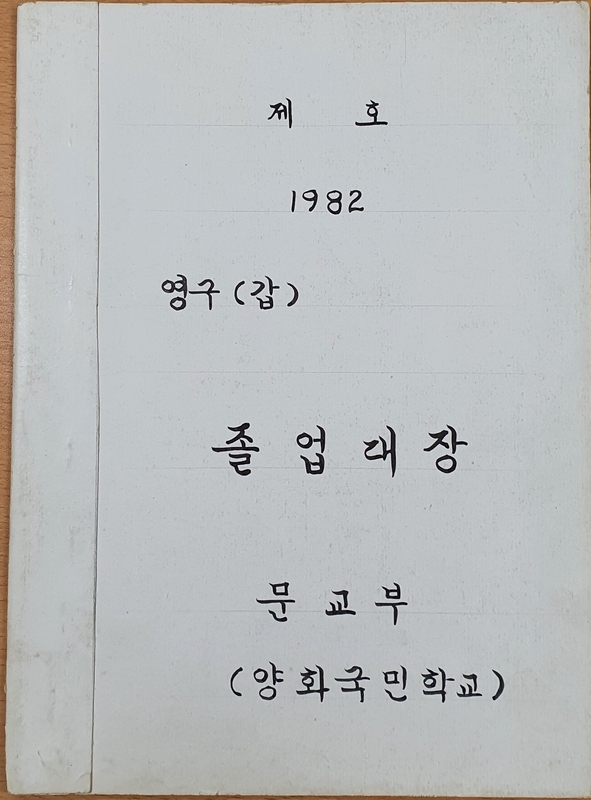 제 호
1982
영구 (갑)
졸업대장
문교부
(양화국민학교)